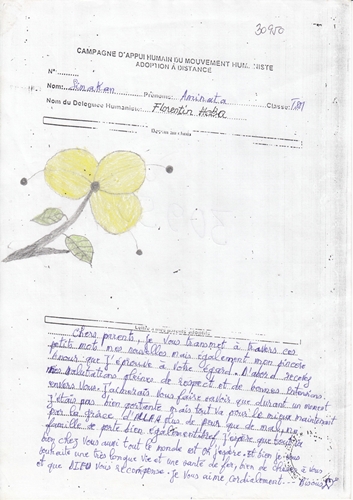 30950
CAMPAGNE D'APPUI HUMAIN DU MOUVEMENT HUMANISTE
ADOPTION A DISTANCE
N°
Nom: Sinakan Prénoms: Aminata Classe:
Nom du Délégué Humaniste: Florentin
Dessin au choix
Chers parents, je vous transmet à travers ces
petits mots mes nouvelles mais également mon sincère
Amour que j'éprouve à votre égard. D'abord recevez
mes salutations pleines de respect et de bonnes intentions
envers Vous. J'aimerais vous faire savoir que durant un moment
j'étais pas bien portante mais tout va pour le mieux maintenant
par la grâce d'ALLAH plus de peur que de mal, ma
famille se porte bien également. Bref j'espère que tout va
bien chez vous aussi tout le monde est ok j'espère. Et bien je vous
souhaite une très longue vie et une santé de fer, bien de choses à vous
et que DIEU vous récompense. Je vous aime cordialement. Bisous